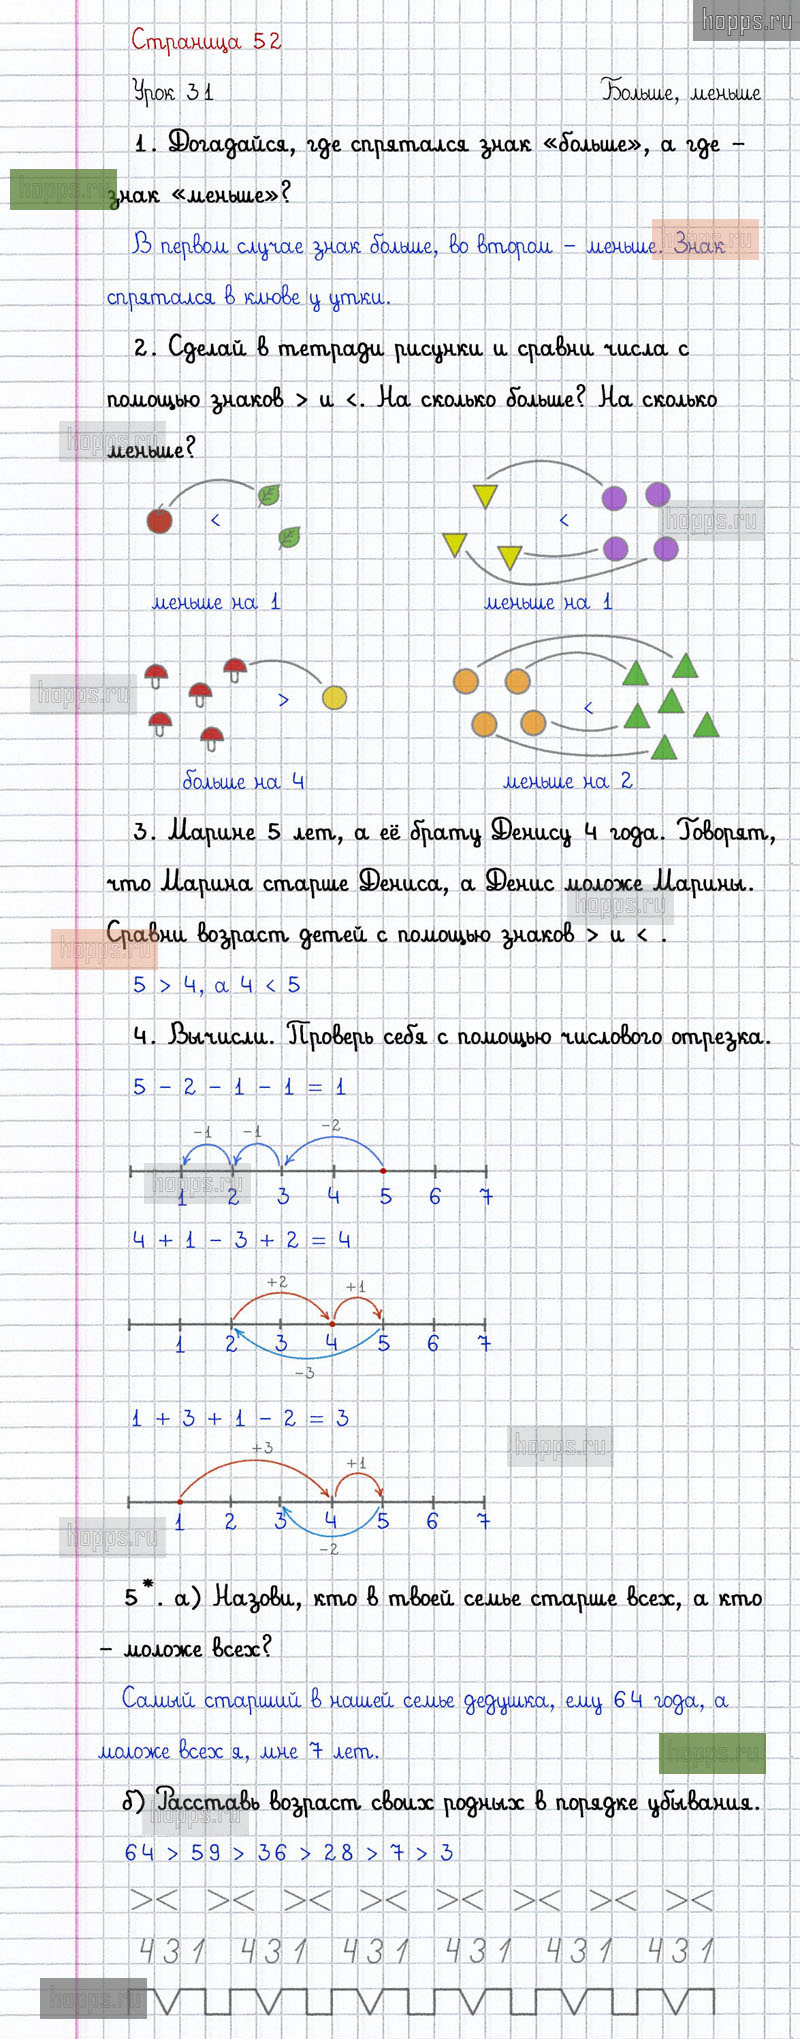 hopps.ru
Страница 52
Урок 31 Больше, меньше
1. Догадайся, где спрятался знак «больше», а где –
hopps.ru
знак «меньше»?
В первом случае знак больше, во втором – меньше. Знак
hopps.ru
спрятался в клюве у утки.
2. Сделай в тетради рисунки и сравни числа с
помощью знаков > и <. На сколько больше? На сколько
hopps.ru
меньше?
< <
hopps.ru
меньше на 1 меньше на 1
hopps.ru
> <
больше на 4 меньше на 2
3. Марине 5 лет, а её брату Денису 4 года. Говорят,
что Марина старше Дениса, а Денис моложе Марины.
hopps.ru
Сравни возраст детей с помощью знаков > и < .
hopps.ru
5 > 4, а 4 < 5
4. Вычисли. Проверь себя с помощью числового отрезка.
5 – 2 – 1 – 1 = 1
–1 –1 –2
hopps.ru
1 2 3 4 5 6 7
4 + 1 – 3 + 2 = 4
+2 +1
1 2 3 4 5 6 7
–3
1 + 3 + 1 – 2 = 3
hopps.ru
+3 +1
1 2 3 4 5 6 7
hopps.ru
–2
5*. а) Назови, кто в твоей семье старше всех, а кто
– моложе всех?
Самый старший в нашей семье дедушка, ему 64 года, а
моложе всех я, мне 7 лет.
hopps.ru
б) Расставь возраст своих родных в порядке убывания.
hopps.ru
64 > 59 > 36 > 28 > 7 > 3
>< >< >< >< >< >< >< ><
431 431 431 431 431 431
hopps.ru